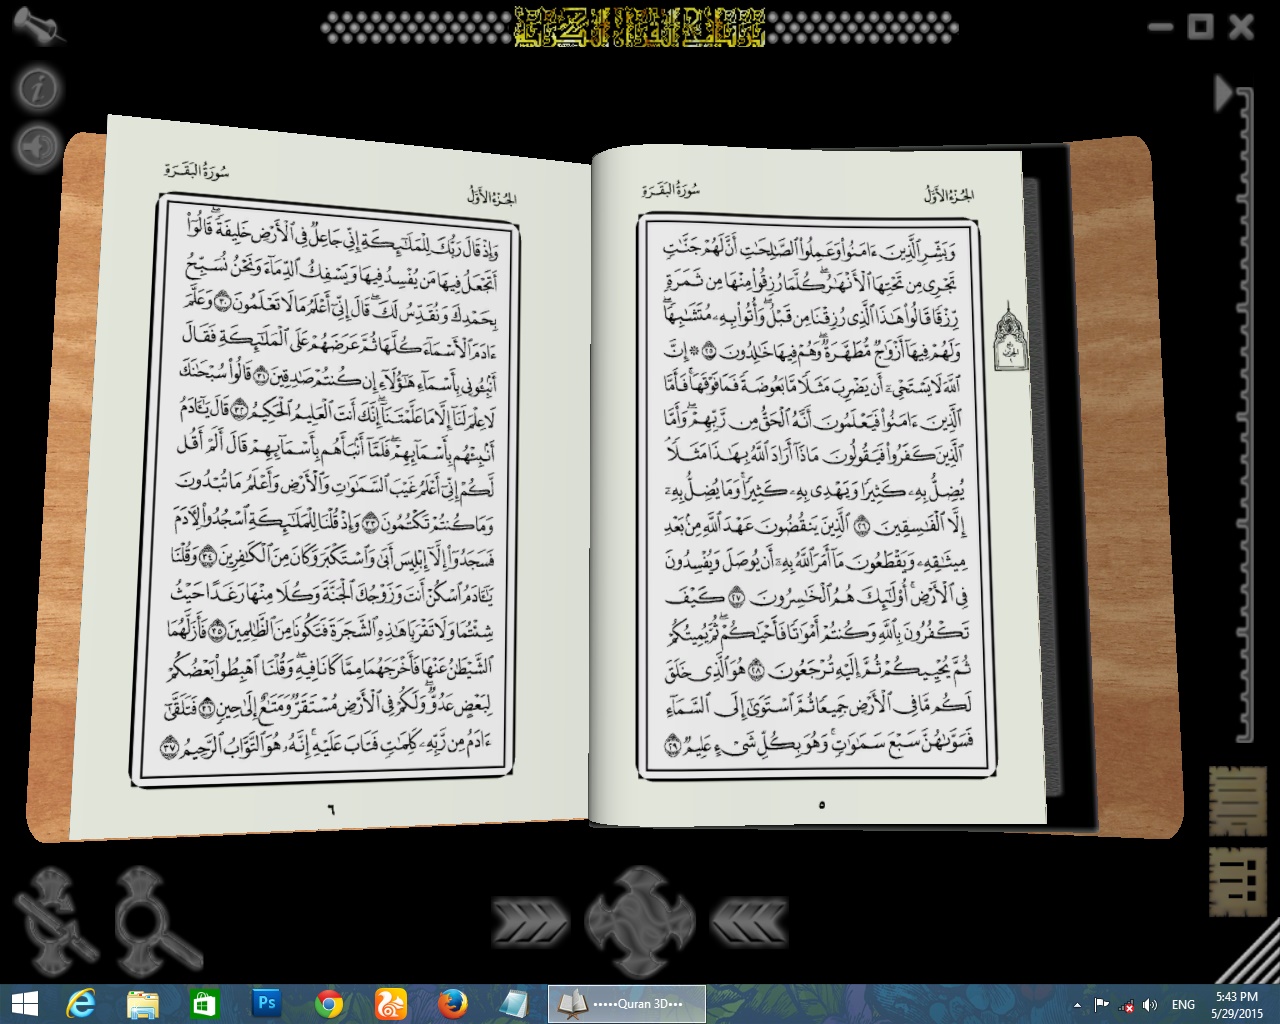 سُورَةُ البَقَرَةِ
الجُزءُ الأَوَّلُ
وَبَشِّرِ ٱلَّذِينَ ءَامَنُوا۟ وَعَمِلُوا۟ ٱلصَّٰلِحَٰتِ أَنَّ لَهُمْ جَنَّٰتٍ
تَجْرِى مِن تَحْتِهَا ٱلْأَنْهَٰرُ ۖ كُلَّمَا رُزِقُوا۟ مِنْهَا مِن ثَمَرَةٍ
رِّزْقًا قَالُوا۟ هَٰذَا ٱلَّذِى رُزِقْنَا مِن قَبْلُ ۖ وَأُتُوا۟ بِهِۦ مُتَشَٰبِهًا ۖ
وَلَهُمْ فِيهَآ أَزْوَٰجٌ مُّطَهَّرَةٌ ۖ وَهُمْ فِيهَا خَٰلِدُونَ ٢٥ ۞ إِنَّ
ٱللَّهَ لَا يَسْتَحْىِۦٓ أَن يَضْرِبَ مَثَلًا مَّا بَعُوضَةً فَمَا فَوْقَهَا ۚ فَأَمَّا
ٱلَّذِينَ ءَامَنُوا۟ فَيَعْلَمُونَ أَنَّهُ ٱلْحَقُّ مِن رَّبِّهِمْ ۖ وَأَمَّا
ٱلَّذِينَ كَفَرُوا۟ فَيَقُولُونَ مَاذَآ أَرَادَ ٱللَّهُ بِهَٰذَا مَثَلًا ۘ
يُضِلُّ بِهِۦ كَثِيرًا وَيَهْدِى بِهِۦ كَثِيرًا ۚ وَمَا يُضِلُّ بِهِۦٓ
إِلَّا ٱلْفَٰسِقِينَ ٢٦ ٱلَّذِينَ يَنقُضُونَ عَهْدَ ٱللَّهِ مِنۢ بَعْدِ
مِيثَٰقِهِۦ وَيَقْطَعُونَ مَآ أَمَرَ ٱللَّهُ بِهِۦٓ أَن يُوصَلَ وَيُفْسِدُونَ
فِى ٱلْأَرْضِ ۚ أُو۟لَٰٓئِكَ هُمُ ٱلْخَٰسِرُونَ ٢٧ كَيْفَ
تَكْفُرُونَ بِٱللَّهِ وَكُنتُمْ أَمْوَٰتًا فَأَحْيَٰكُمْ ۖ ثُمَّ يُمِيتُكُمْ
ثُمَّ يُحْيِيكُمْ ثُمَّ إِلَيْهِ تُرْجَعُونَ ٢٨ هُوَ ٱلَّذِى خَلَقَ
لَكُم مَّا فِى ٱلْأَرْضِ جَمِيعًا ثُمَّ ٱسْتَوَىٰٓ إِلَى ٱلسَّمَآءِ
فَسَوَّىٰهُنَّ سَبْعَ سَمَٰوَٰتٍ ۚ وَهُوَ بِكُلِّ شَىْءٍ عَلِيمٌ ٢٩
٥
سُورَةُ البَقَرَةِ
الجُزءُ الأَوَّلُ
وَإِذْ قَالَ رَبُّكَ لِلْمَلَٰٓئِكَةِ إِنِّى جَاعِلٌ فِى ٱلْأَرْضِ خَلِيفَةً ۖ قَالُوٓا۟
أَتَجْعَلُ فِيهَا مَن يُفْسِدُ فِيهَا وَيَسْفِكُ ٱلدِّمَآءَ وَنَحْنُ نُسَبِّحُ
بِحَمْدِكَ وَنُقَدِّسُ لَكَ ۖ قَالَ إِنِّىٓ أَعْلَمُ مَا لَا تَعْلَمُونَ ٣٠ وَعَلَّمَ
ءَادَمَ ٱلْأَسْمَآءَ كُلَّهَا ثُمَّ عَرَضَهُمْ عَلَى ٱلْمَلَٰٓئِكَةِ فَقَالَ
أَنۢبِـُٔونِى بِأَسْمَآءِ هَٰٓؤُلَآءِ إِن كُنتُمْ صَٰدِقِينَ ٣١ قَالُوا۟ سُبْحَٰنَكَ
لَا عِلْمَ لَنَآ إِلَّا مَا عَلَّمْتَنَآ ۖ إِنَّكَ أَنتَ ٱلْعَلِيمُ ٱلْحَكِيمُ ٣٢ قَالَ يَٰٓـَٔادَمُ
أَنۢبِئْهُم بِأَسْمَآئِهِمْ ۖ فَلَمَّآ أَنۢبَأَهُم بِأَسْمَآئِهِمْ قَالَ أَلَمْ أَقُل
لَّكُمْ إِنِّىٓ أَعْلَمُ غَيْبَ ٱلسَّمَٰوَٰتِ وَٱلْأَرْضِ وَأَعْلَمُ مَا تُبْدُونَ
وَمَا كُنتُمْ تَكْتُمُونَ ٣٣ وَإِذْ قُلْنَا لِلْمَلَٰٓئِكَةِ ٱسْجُدُوا۟ لِـَٔادَمَ
فَسَجَدُوٓا۟ إِلَّآ إِبْلِيسَ أَبَىٰ وَٱسْتَكْبَرَ وَكَانَ مِنَ ٱلْكَٰفِرِينَ ٣٤ وَقُلْنَا
يَٰٓـَٔادَمُ ٱسْكُنْ أَنتَ وَزَوْجُكَ ٱلْجَنَّةَ وَكُلَا مِنْهَا رَغَدًا حَيْثُ
شِئْتُمَا وَلَا تَقْرَبَا هَٰذِهِ ٱلشَّجَرَةَ فَتَكُونَا مِنَ ٱلظَّٰلِمِينَ ٣٥ فَأَزَلَّهُمَا
ٱلشَّيْطَٰنُ عَنْهَا فَأَخْرَجَهُمَا مِمَّا كَانَا فِيهِ ۖ وَقُلْنَا ٱهْبِطُوا۟ بَعْضُكُمْ
لِبَعْضٍ عَدُوٌّ ۖ وَلَكُمْ فِى ٱلْأَرْضِ مُسْتَقَرٌّ وَمَتَٰعٌ إِلَىٰ حِينٍ ٣٦ فَتَلَقَّىٰٓ
ءَادَمُ مِن رَّبِّهِۦ كَلِمَٰتٍ فَتَابَ عَلَيْهِ ۚ إِنَّهُۥ هُوَ ٱلتَّوَّابُ ٱلرَّحِيمُ ٣٧
٦
Ps
•••••Quran 3D•••
ENG
5:43 PM
5/29/2015